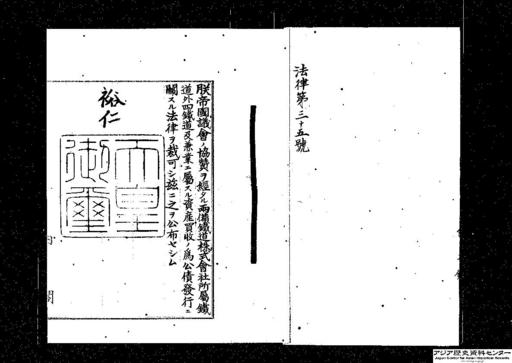 法律第三十五號
朕帝國議會ノ協贊ヲ經タル兩備鐵道株式會社所屬鐵
道外四鐵道及兼業ニ屬スル資産買收ノ爲公債發行ニ
關スル法律ヲ裁可シ玆ニ之ヲ公布セシム
裕仁
天皇
御璽
アジア歴史資料センター
Japan Center for Asian Historical Records